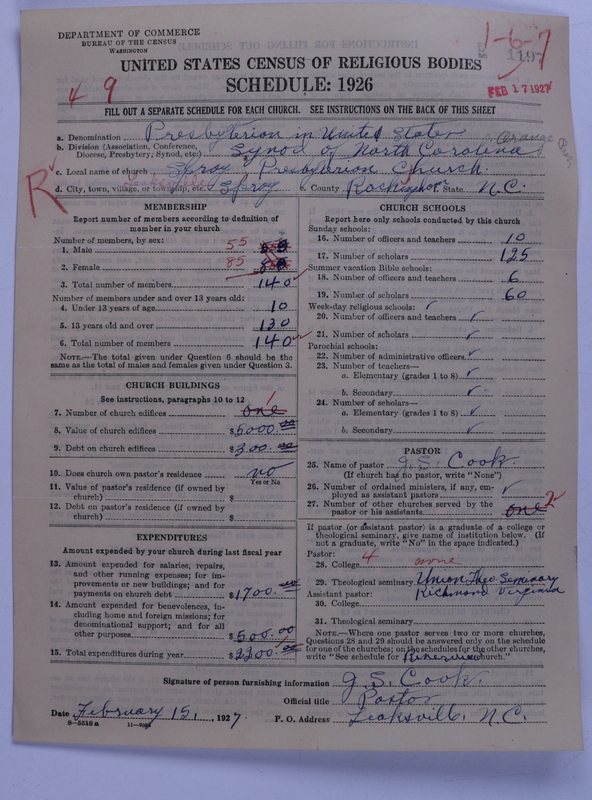 DEPARTMENT OF COMMERCE
BUREAU OF THE CENSUS
WASHINGTON
1-6-7
1197
UNITED STATES CENSUS OF RELIGIOUS BODIES
SCHEDULE: 1926
4 9
FEB 17 1927
FILL OUT A SEPARATE SCHEDULE FOR EACH CHURCH. SEE INSTRUCTIONS ON THE BACK OF THIS SHEET
a. Denomination Presbyterian in United States
b. Division (Association, Conference, Diocese, Presbytery, Synod, etc.) Synod of North Carolina Orange
c. Local name of church Spray Presbyterian Church
R Leaksville
d. City, town, village, or township, etc. Spray e. County Rockingham f. State N.C.
MEMBERSHIP
Report number of members according to definition of
member in your church
Number of members by sex:
1. Male 55
2. Female 85
3. Total number of members 140
Number of members under and over 13 years old:
4. Under 13 years of age 10
5. 13 years old and over 130
6. Total number of members 140
NOTE.—The total given under Question 6 should be the
same as the total of males and females given under Question 3.
CHURCH BUILDINGS
See instructions, paragraphs 10 to 12
7. Number of church edifices one 1
8. Value of church edifices $5000.00
9. Debt on church edifices $300.00
10. Does church own pastor's residence no
Yes or No
11. Value of pastor's residence (if owned by
church) $
12. Debt on pastor's residence (if owned by
church) $
EXPENDITURES
Amount expended by your church during last fiscal year
13. Amount expended for salaries, repairs,
and other running expenses; for im-
provements or new buildings; and for
payments on church debt $1700.00
14. Amount expended for benevolences, in-
cluding home and foreign missions; for
denominational support; and for all
other purposes $500.00
15. Total expenditures during year $2200.00
CHURCH SCHOOLS
Report here only schools conducted by this church
Sunday schools:
16. Number of officers and teachers 10
17. Number of scholars 125
Summer vacation Bible schools:
18. Number of officers and teachers 6
19. Number of scholars 60
Week-day religious schools:
20. Number of officers and teachers
21. Number of scholars
Parochial schools:
22. Number of administrative officers
23. Number of teachers—
a. Elementary (grades 1 to 8)
b. Secondary
24. Number of scholars—
a. Elementary (grades 1 to 8)
b. Secondary
PASTOR
25. Name of pastor G. S. Cook
(If church has no pastor, write "None")
26. Number of ordained ministers, if any, em-
ployed as assistant pastors
27. Number of other churches served by the
pastor or his assistants one 2
If pastor (or assistant pastor) is a graduate of a college or
theological seminary, give name of institution below. (If
not a graduate, write "No" in the space indicated.)
Pastor:
28. College 4 none
29. Theological seminary Union Theo. Seminary
Assistant pastor: Richmond Virginia
30. College
31. Theological seminary
NOTE.—Where one pastor serves two or more churches,
Questions 28 and 29 should be answered only on the schedule
for one of the churches; on the schedules for the other churches,
write "See schedule for church."
Signature of person furnishing information G. S. Cook
Official title Pastor
Date February 15, 1927. P. O. Address Leaksville. N.C.
8-5518a 11-9034